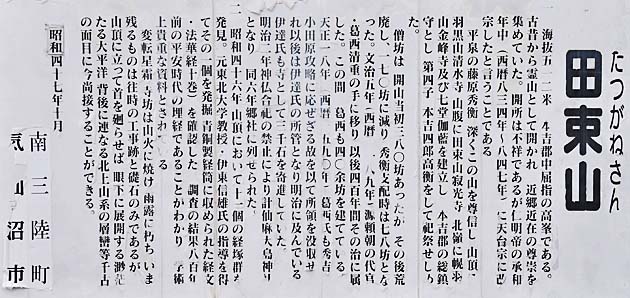 たつがねさん
田束山
一 海抜五一二米 本吉郡中屈指の高峯である。
古昔から霊山として開かれ 近郷近在の尊崇を
集めていた。開所は不祥であるが仁明帝の承和
年中(西暦八三四年〜八四七年)に天台宗に改
宗したと言うことである
平泉の藤原秀衡 深くこの山を尊信し 山頂に
羽黒山清水寺 山腹に田束山寂光寺 北嶺に幌羽
山金峰寺及び七堂伽藍を建立し 本吉郡の総鎮
守とし 第四子 本吉四郎高衡をして祀祭せしめ
僧坊は 開山当初三八〇坊あったが その後荒
廃し、一七〇坊に減り 秀衡支配時は七八坊とな
った。文治五年(西暦一一八九年)源頼朝の代官
葛西清重の手に移り 以後四百年間その治に属
した。この間 葛西も四〇余坊を建てている。
天正一八年(西暦一五九〇年)葛西氏も秀吉
小田原攻略に応ぜざる故を以て所領を没収せ
れ以後は伊達氏の所管となり明治に及んでいる
伊達氏も寺として三千石を寄進していた。
明治二年神仏合祀の禁止により計仙麻大島神社
となり 同六年郷社に列せられた。
二 昭和四十六年 山頂において十一個の経塚群を
発見。元東北大学教授 伊東信雄氏の指導を得
てその一個を発掘 青銅製経筒に収められた経文
・法華経十巻)を確認した 調査の結果八百年
前の平安時代の埋経であることがわかり 学術
上貴重な資料とされている
変転星霜 寺坊は山火に焼け 雨露に朽ち いま
残るものは往時の工事跡と礎石のみであるが
山頂に立って首を廻らせば 眼下に展開する渺茫
たる太平洋 背後に連なる北上山系の層巒等千古
の面目に今尚接することができる。
昭和四十七年十月
南三陸町
気仙沼市